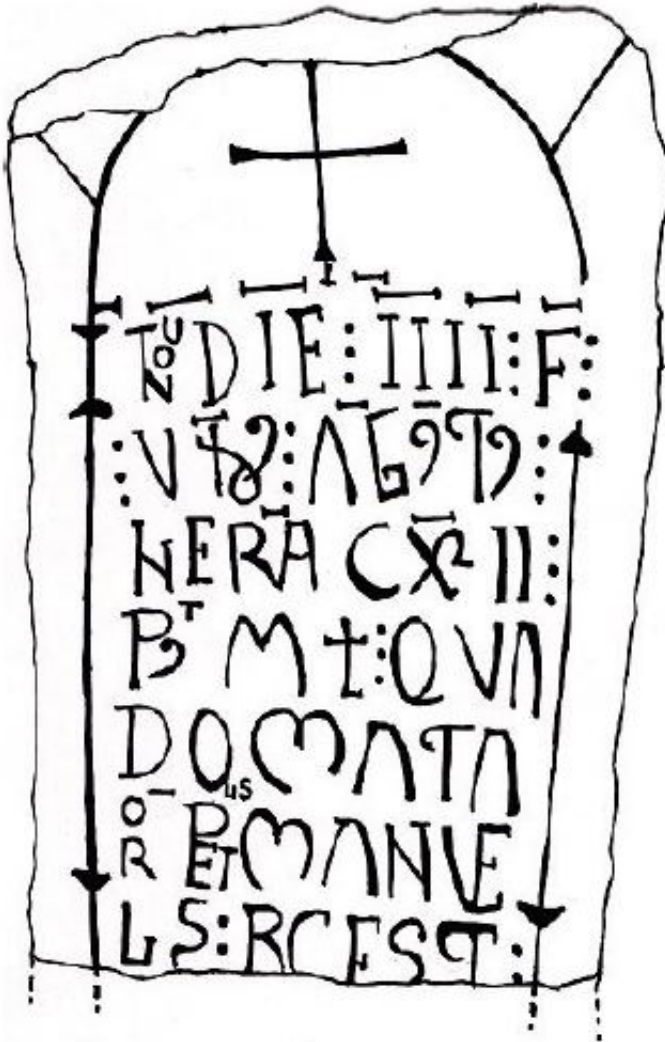 NOU DIE ⋮ IIII ⋮ F ⋮
⋮ V ⋮ AG9T9 ⋮
NERA CXII ⋮
P9T M † ⋮ QVA
DO MATA
OR PET MANVE
LS ⋮ RCEST ⋮